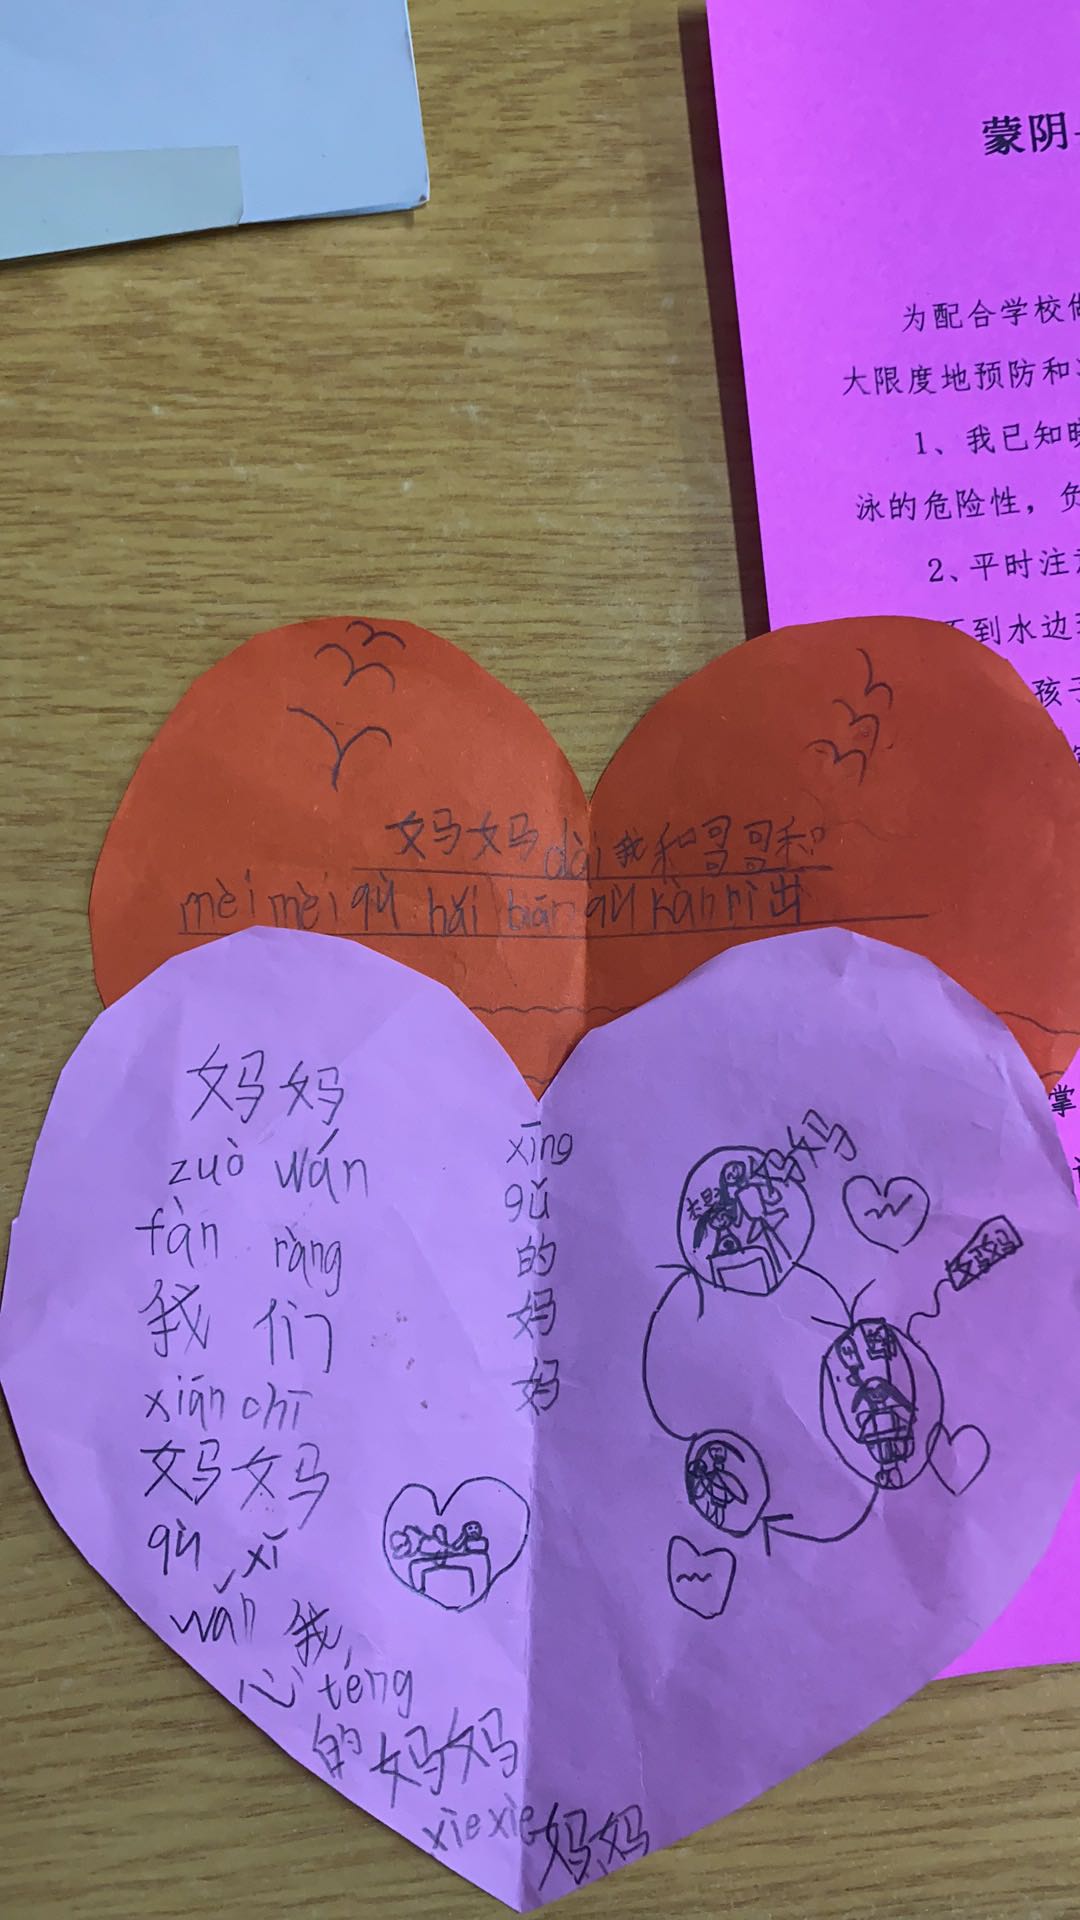 蒙阴
为配合学校
大限度地预防和
1、我已知
泳的危险性，负
2、平时注
到水边
孩子
妈妈dài我和哥哥和
mèi mèi qù hǎi biān qù kàn rì出
掌
妈妈
zuò wán
fàn ràng
我们
xiān chī
妈妈
qù xǐ
wǎn 我
心 téng
的妈妈
xiè xiè 妈妈
xīng
gǔ
的
妈
妈
妈妈
妈妈